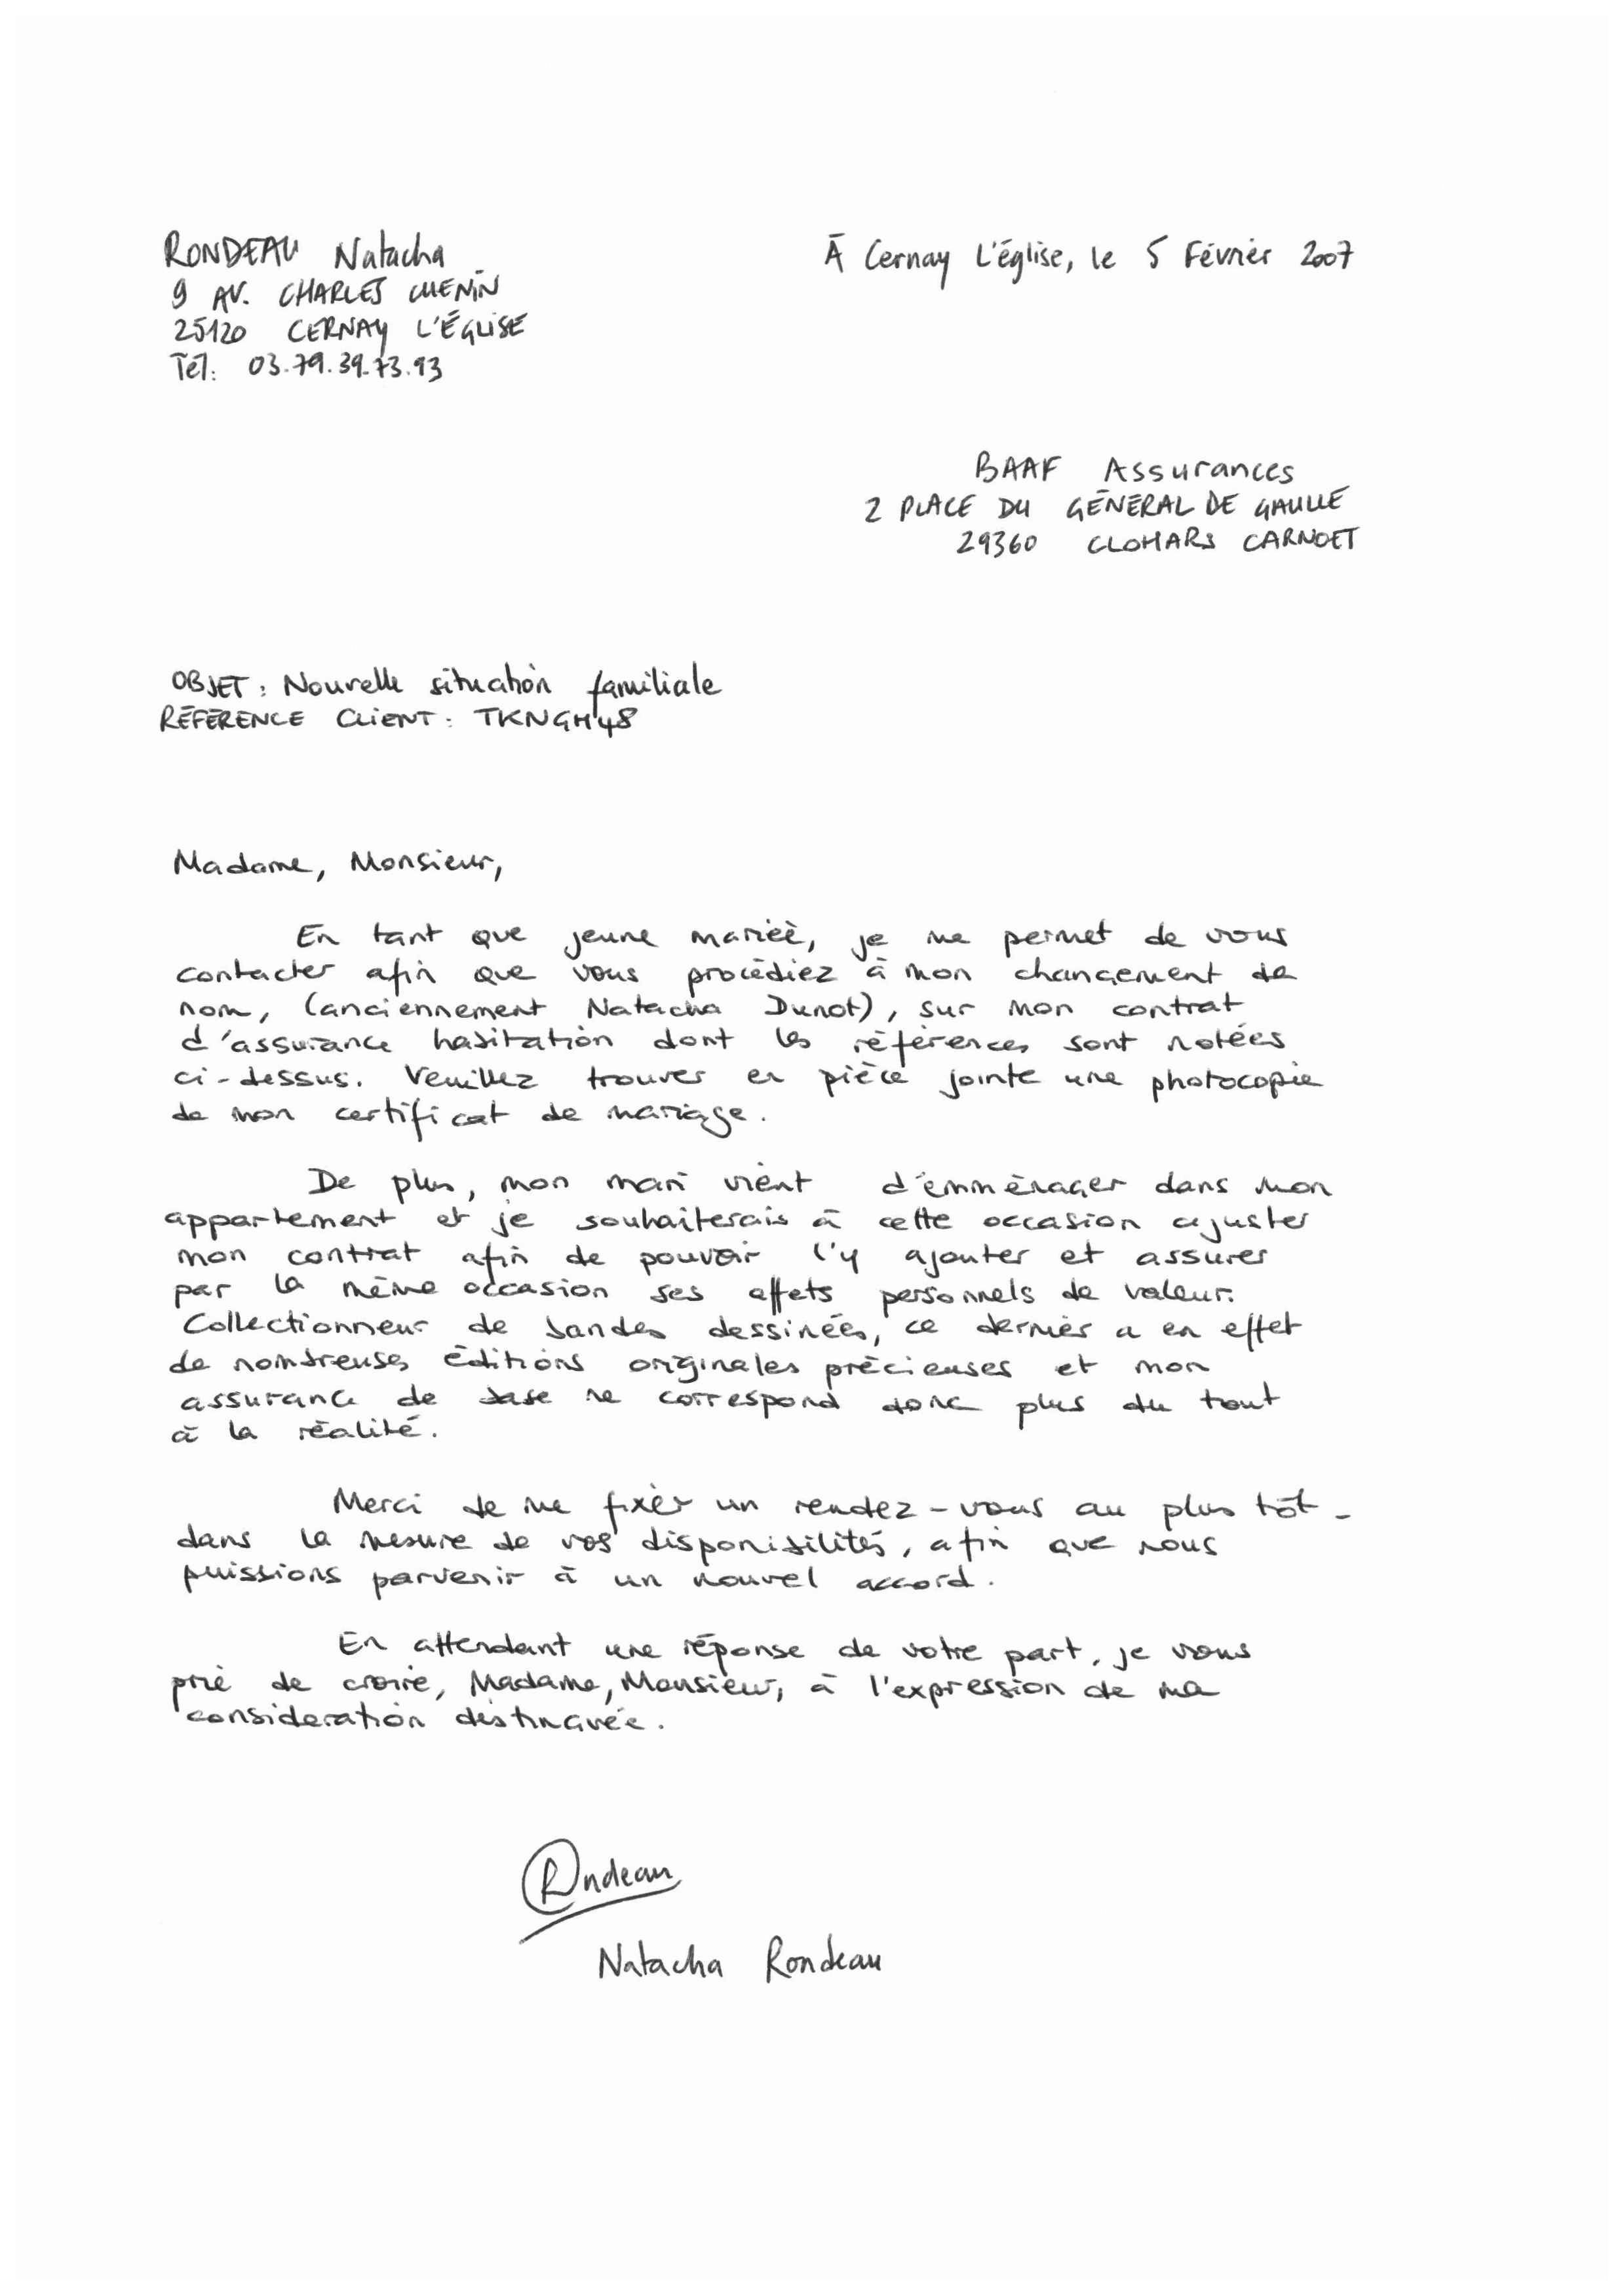 RONDEAU Natacha
9 AV. CHARLES CUENIN
25120 CERNAY L'ÉGLISE
Tél: 03.79.39.73.93
À Cernay L'église, le 5 Février 2007
BAAF Assurances
2 PLACE DU GÉNÉRAL DE GAULLE
29360 CLOHARS CARNOET
OBJET : Nouvelle situation familiale
RÉFÉRENCE CLIENT : TKNGH48
Madame, Monsieur,
En tant que jeune mariée, je me permet de vous
contacter afin que vous procédiez à mon changement de
nom, (anciennement Natacha Dunot), sur mon contrat
d'assurance habitation dont les références sont notées
ci-dessus. Veuillez trouver en pièce jointe une photocopie
de mon certificat de mariage.
De plus, mon mari vient d'emménager dans mon
appartement et je souhaiterais à cette occasion ajuster
mon contrat afin de pouvoir l'y ajouter et assurer
par la même occasion ses effets personnels de valeur.
Collectionneur de bandes dessinées, ce dernier a en effet
de nombreuses éditions originales précieuses et mon
assurance de base ne correspond donc plus du tout
à la réalité.
Merci de me fixer un rendez-vous au plus tôt -
dans la mesure de vos disponibilités, afin que nous
puissions parvenir à un nouvel accord.
En attendant une réponse de votre part, je vous
prie de croire, Madame, Monsieur, à l'expression de ma
considération distinguée.
Rondeau
Natacha Rondeau